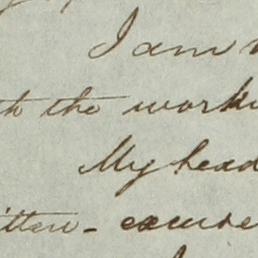 I am
th the work
My head
itten - excuse